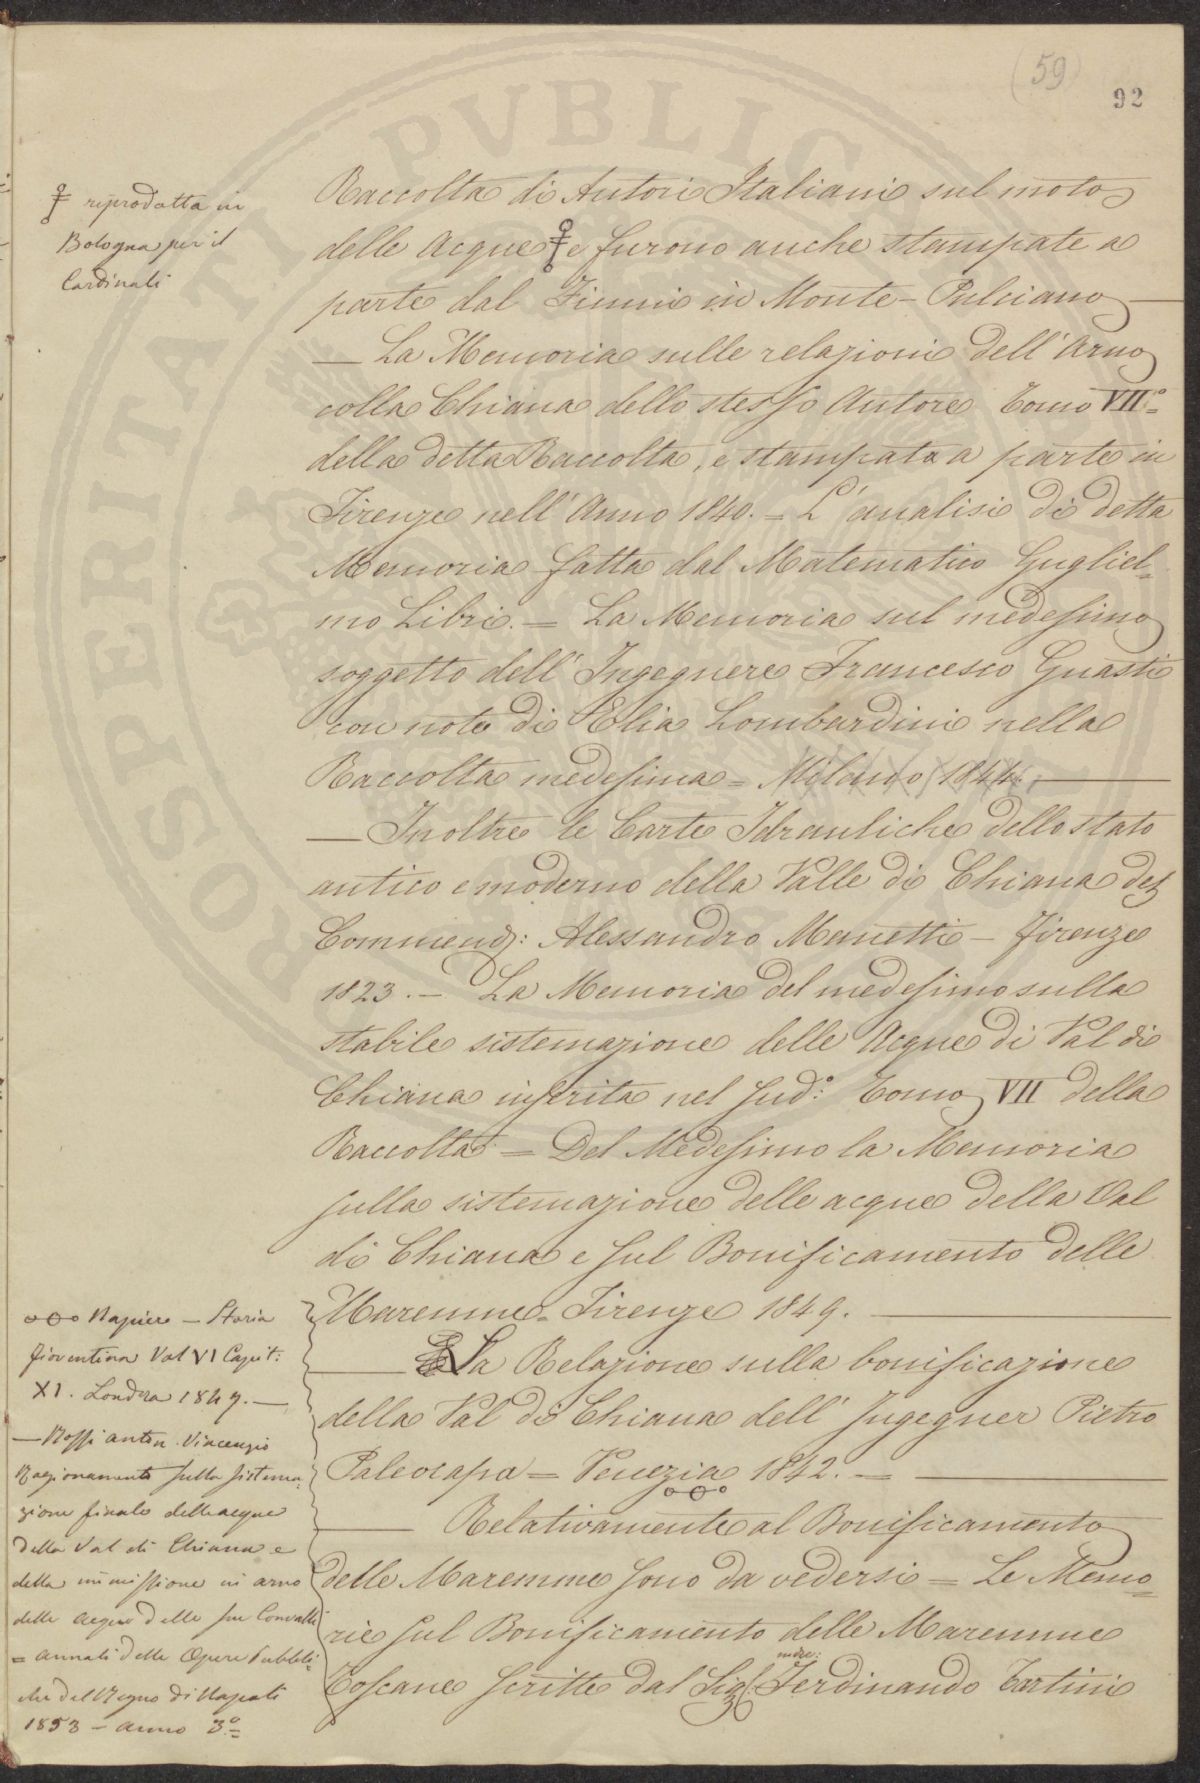 (59)
92
riprodotta in
Bologna per il
Cardinali
Raccolta di Autori Italiani sul moto
delle Acque e furono anche stampate a
parte dal Fiumi in Monte-Pulciano —
— La Memoria sulle relazioni dell'Arno
colla Chiana dello stesso Autore Tomo VII°=
della detta Raccolta, e stampata a parte in
Firenze nell'Anno 1840. = L'analisi di detta
Memoria fatta dal Matematico Gugliel=
mo Libri. = La Memoria sul medesimo
soggetto dell'Ingegnere Francesco Guasti
con note di Elia Lombardini nella
Raccolta medesima = Milano 1844. —
— Inoltre le Carte Idrauliche dello stato
antico e moderno della Valle di Chiana del
Commend: Alessandro Manetti - Firenze
1823. - La Memoria del medesimo sulla
stabile sistemazione delle Acque di Val di
Chiana inserita nel sud:° Tomo VII della
Raccolta = Del Medesimo la Memoria
sulla sistemazione delle acque della Val
di Chiana e sul Bonificamento delle
Maremme = Firenze 1849. —
— La Relazione sulla bonificazione
della Val di Chiana dell'Ingegner Pietro
Paleocapa = Venezia 1842. = —
— Relativamente al Bonificamento
delle Maremme sono da vedersi = Le Memo=
rie sul Bonificamento delle Maremme
Toscane scritte dal Sig: Ferdinando Tartini
Napier — Storia
fiorentina Vol VI Capit:
XI. Londra 1847. —
— Rossi Anton. Vincenzio
Ragionamento sulla sistema=
zione finale delle acque
della Val di Chiana e
della immissione in Arno
delle acque delle sue Convalli
= Annali delle Opere Pubbli=
che del Regno di Napoli
1853 - anno 3°=
PROSPERITATI PVBLICAE